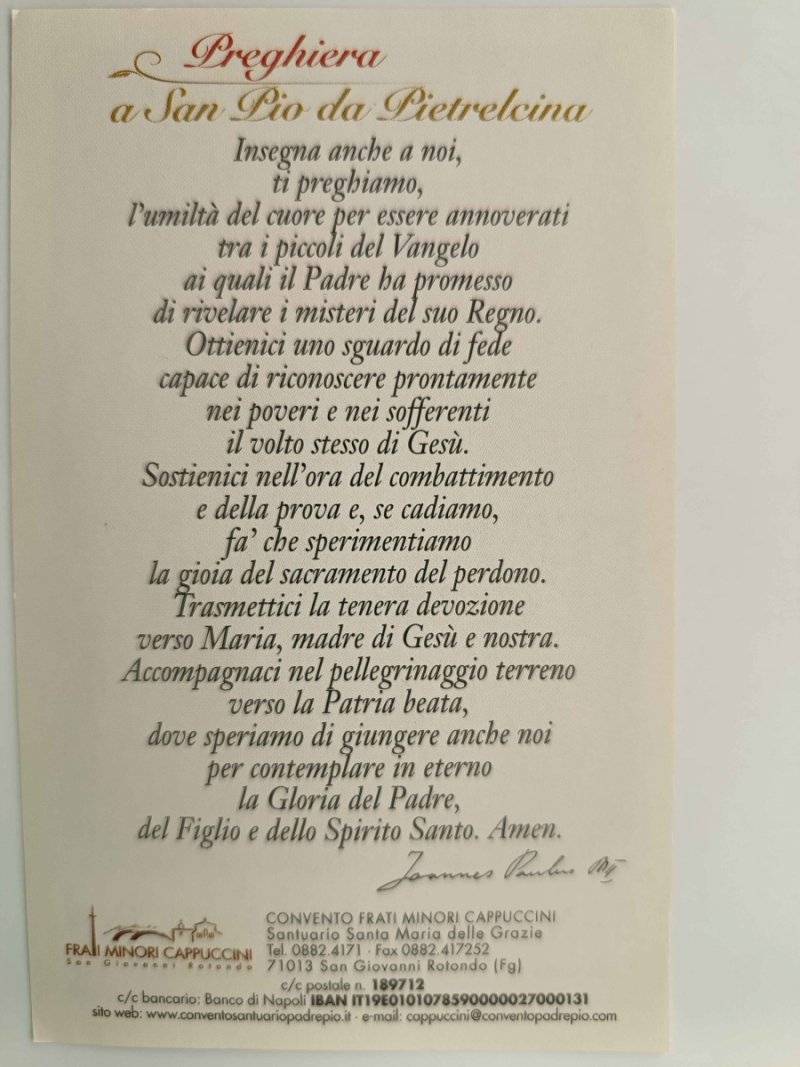 Preghiera
a San Pio da Pietrelcina
Insegna anche a noi,
ti preghiamo,
l'umiltà del cuore per essere annoverati
tra i piccoli del Vangelo
ai quali il Padre ha promesso
di rivelare i misteri del suo Regno.
Ottienici uno sguardo di fede
capace di riconoscere prontamente
nei poveri e nei sofferenti
il volto stesso di Gesù.
Sostienici nell'ora del combattimento
e della prova e, se cadiamo,
fa' che sperimentiamo
la gioia del sacramento del perdono.
Trasmettici la tenera devozione
verso Maria, madre di Gesù e nostra.
Accompagnaci nel pellegrinaggio terreno
verso la Patria beata,
dove speriamo di giungere anche noi
per contemplare in eterno
la Gloria del Padre,
del Figlio e dello Spirito Santo. Amen.
Joannes Paulus PP II
FRATI MINORI CAPPUCCINI
San Giovanni Rotondo
CONVENTO FRATI MINORI CAPPUCCINI
Santuario Santa Maria delle Grazie
Tel. 0882.4171 · Fax 0882.417252
71013 San Giovanni Rotondo (Fg)
c/c postale n. 189712
c/c bancario: Banco di Napoli IBAN IT19E0101078590000027000131
sito web: www.conventosantuariopadrepio.it · e-mail: cappuccini@conventopadrepio.com